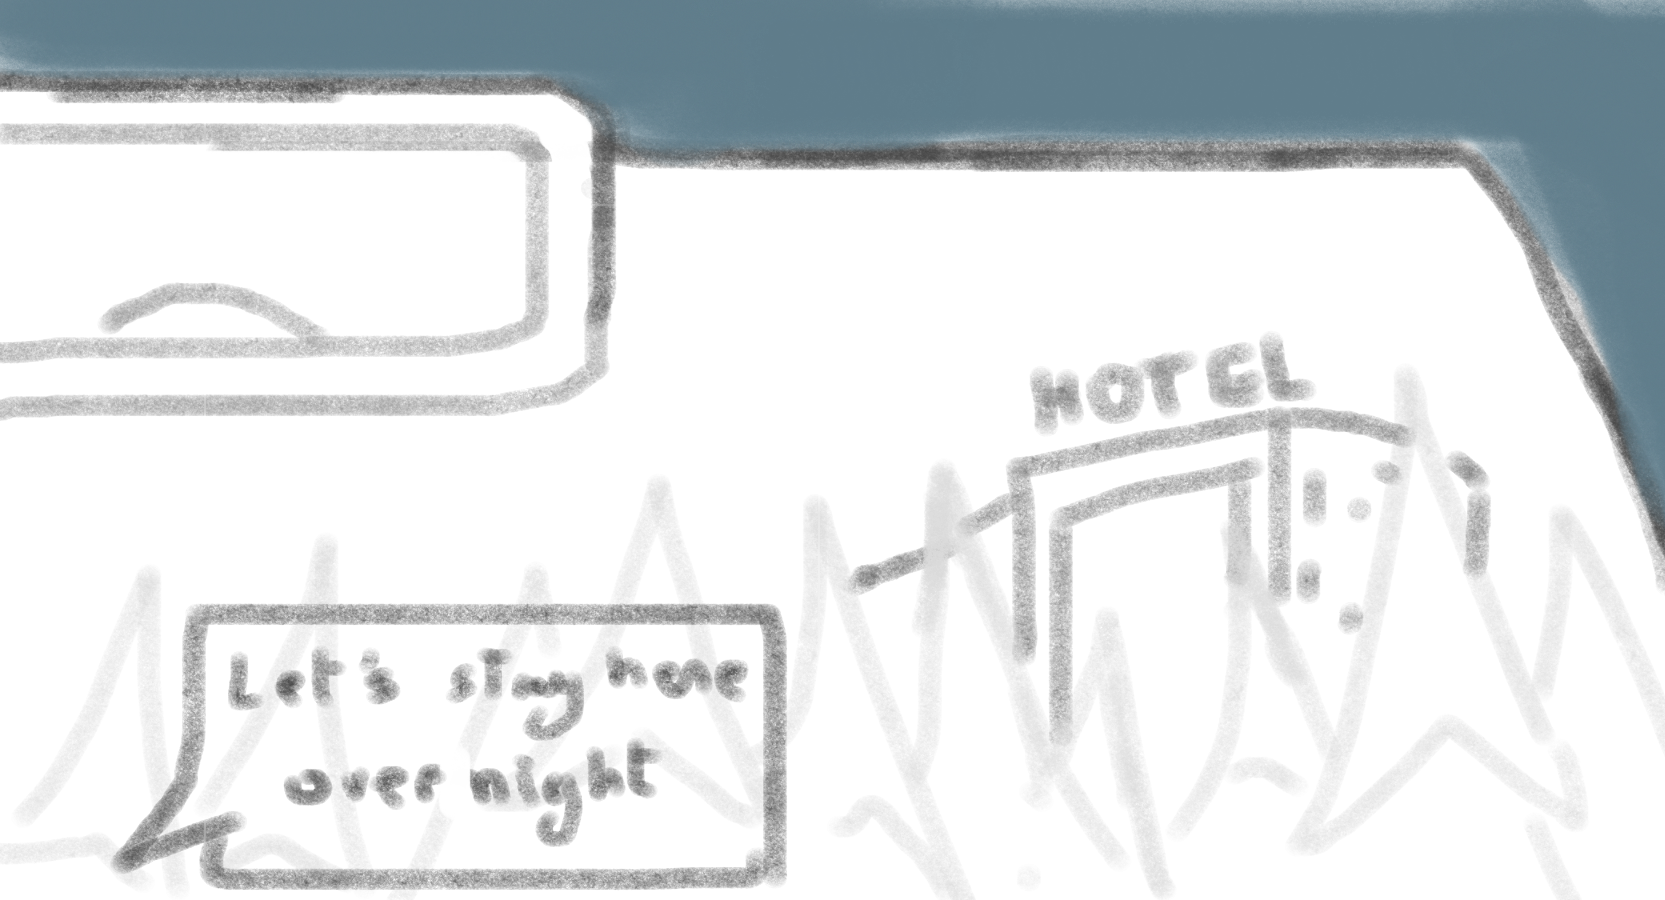 HOTEL
Let's stay here
over night